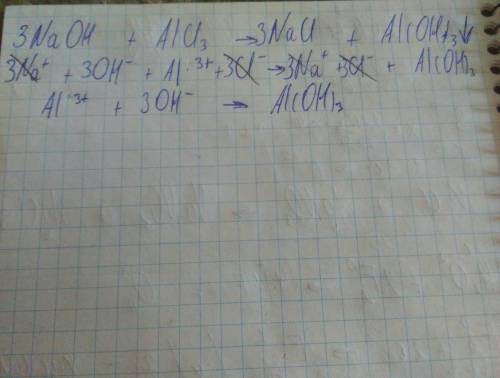 3NaOH + AlCl₃ → 3NaCl + Al(OH)₃↓
3Na⁺ + 3OH⁻ + Al³⁺ + 3Cl⁻ → 3Na⁺ 3Cl⁻ + Al(OH)₃
Al³⁺ + 3OH⁻ → Al(OH)₃